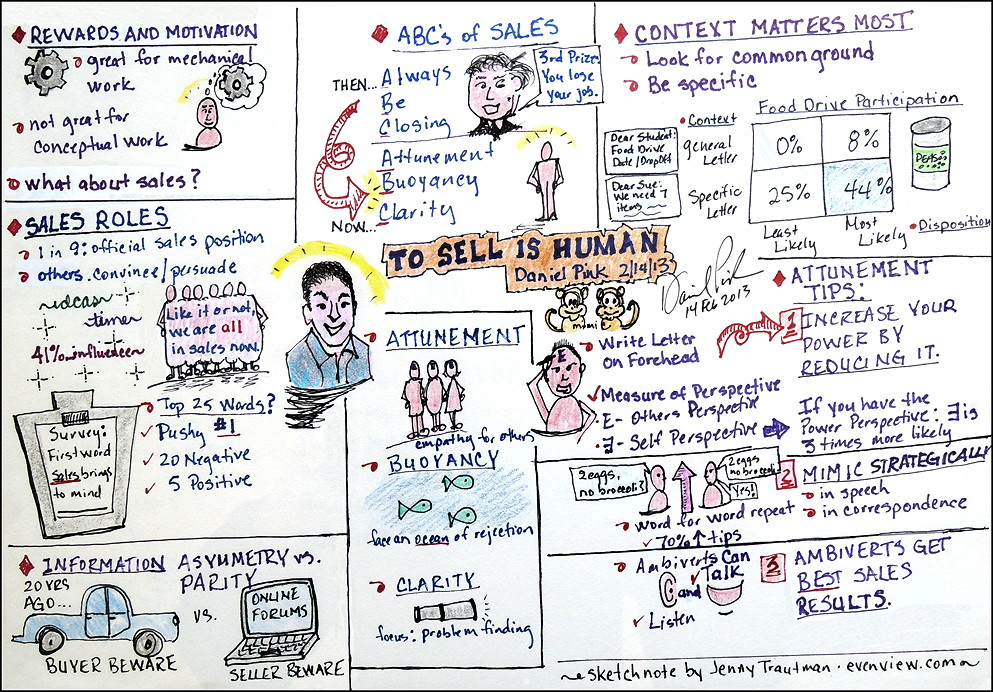 REWARDS AND MOTIVATION
great for mechanical
work
not great for
conceptual work
what about sales?
ABC's of SALES
THEN...
Always
Be
Closing
3rd Prize
You lose
your job.
Attunement
Buoyancy
Clarity
NOW...
CONTEXT MATTERS MOST
Look for common ground
Be specific
Food Drive Participation
Context
Dear Student:
Food Drive
Date/DropOff
general
Letter
0%
8%
PEAS
Dear Sue:
We need 7
items
Specific
Letter
25%
44%
Least
Likely
Most
Likely
Disposition
SALES ROLES
1 in 9: official sales position
others. convince/persuade
ideas
time
41%
Like it or not,
we are all
in sales now.
Survey:
First word
sales brings
to mind
Top 25 Words?
Pushy #1
20 Negative
5 Positive
TO SELL IS HUMAN
Daniel Pink 2/14/13
14 Feb 2013
ATTUNEMENT
empathy for others
BUOYANCY
face an ocean of rejection
CLARITY
focus: problem finding
ATTUNEMENT
TIPS:
1
INCREASE YOUR
POWER BY
REDUCING IT.
Write Letter
on Forehead
E
Measure of Perspective
E- Others Perspective
Ǝ- Self Perspective
If you have the
Power Perspective: Ǝ is
3 times more likely
2 eggs,
no broccoli?
2 eggs
no broccoli
Yes!
2
MIMIC STRATEGICALLY
in speech
in correspondence
word for word repeat
70% ↑ tips
Ambiverts Can
Talk
and
Listen
3
AMBIVERTS GET
BEST SALES
RESULTS.
INFORMATION ASYMMETRY VS.
PARITY
20 YRS
AGO...
VS.
ONLINE
FORUMS
BUYER BEWARE
SELLER BEWARE
sketchnote by Jenny Trautman. evenview.com